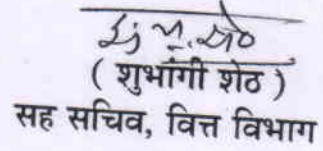 ( शुभांगी शेठ )
सह सचिव, वित्त विभाग